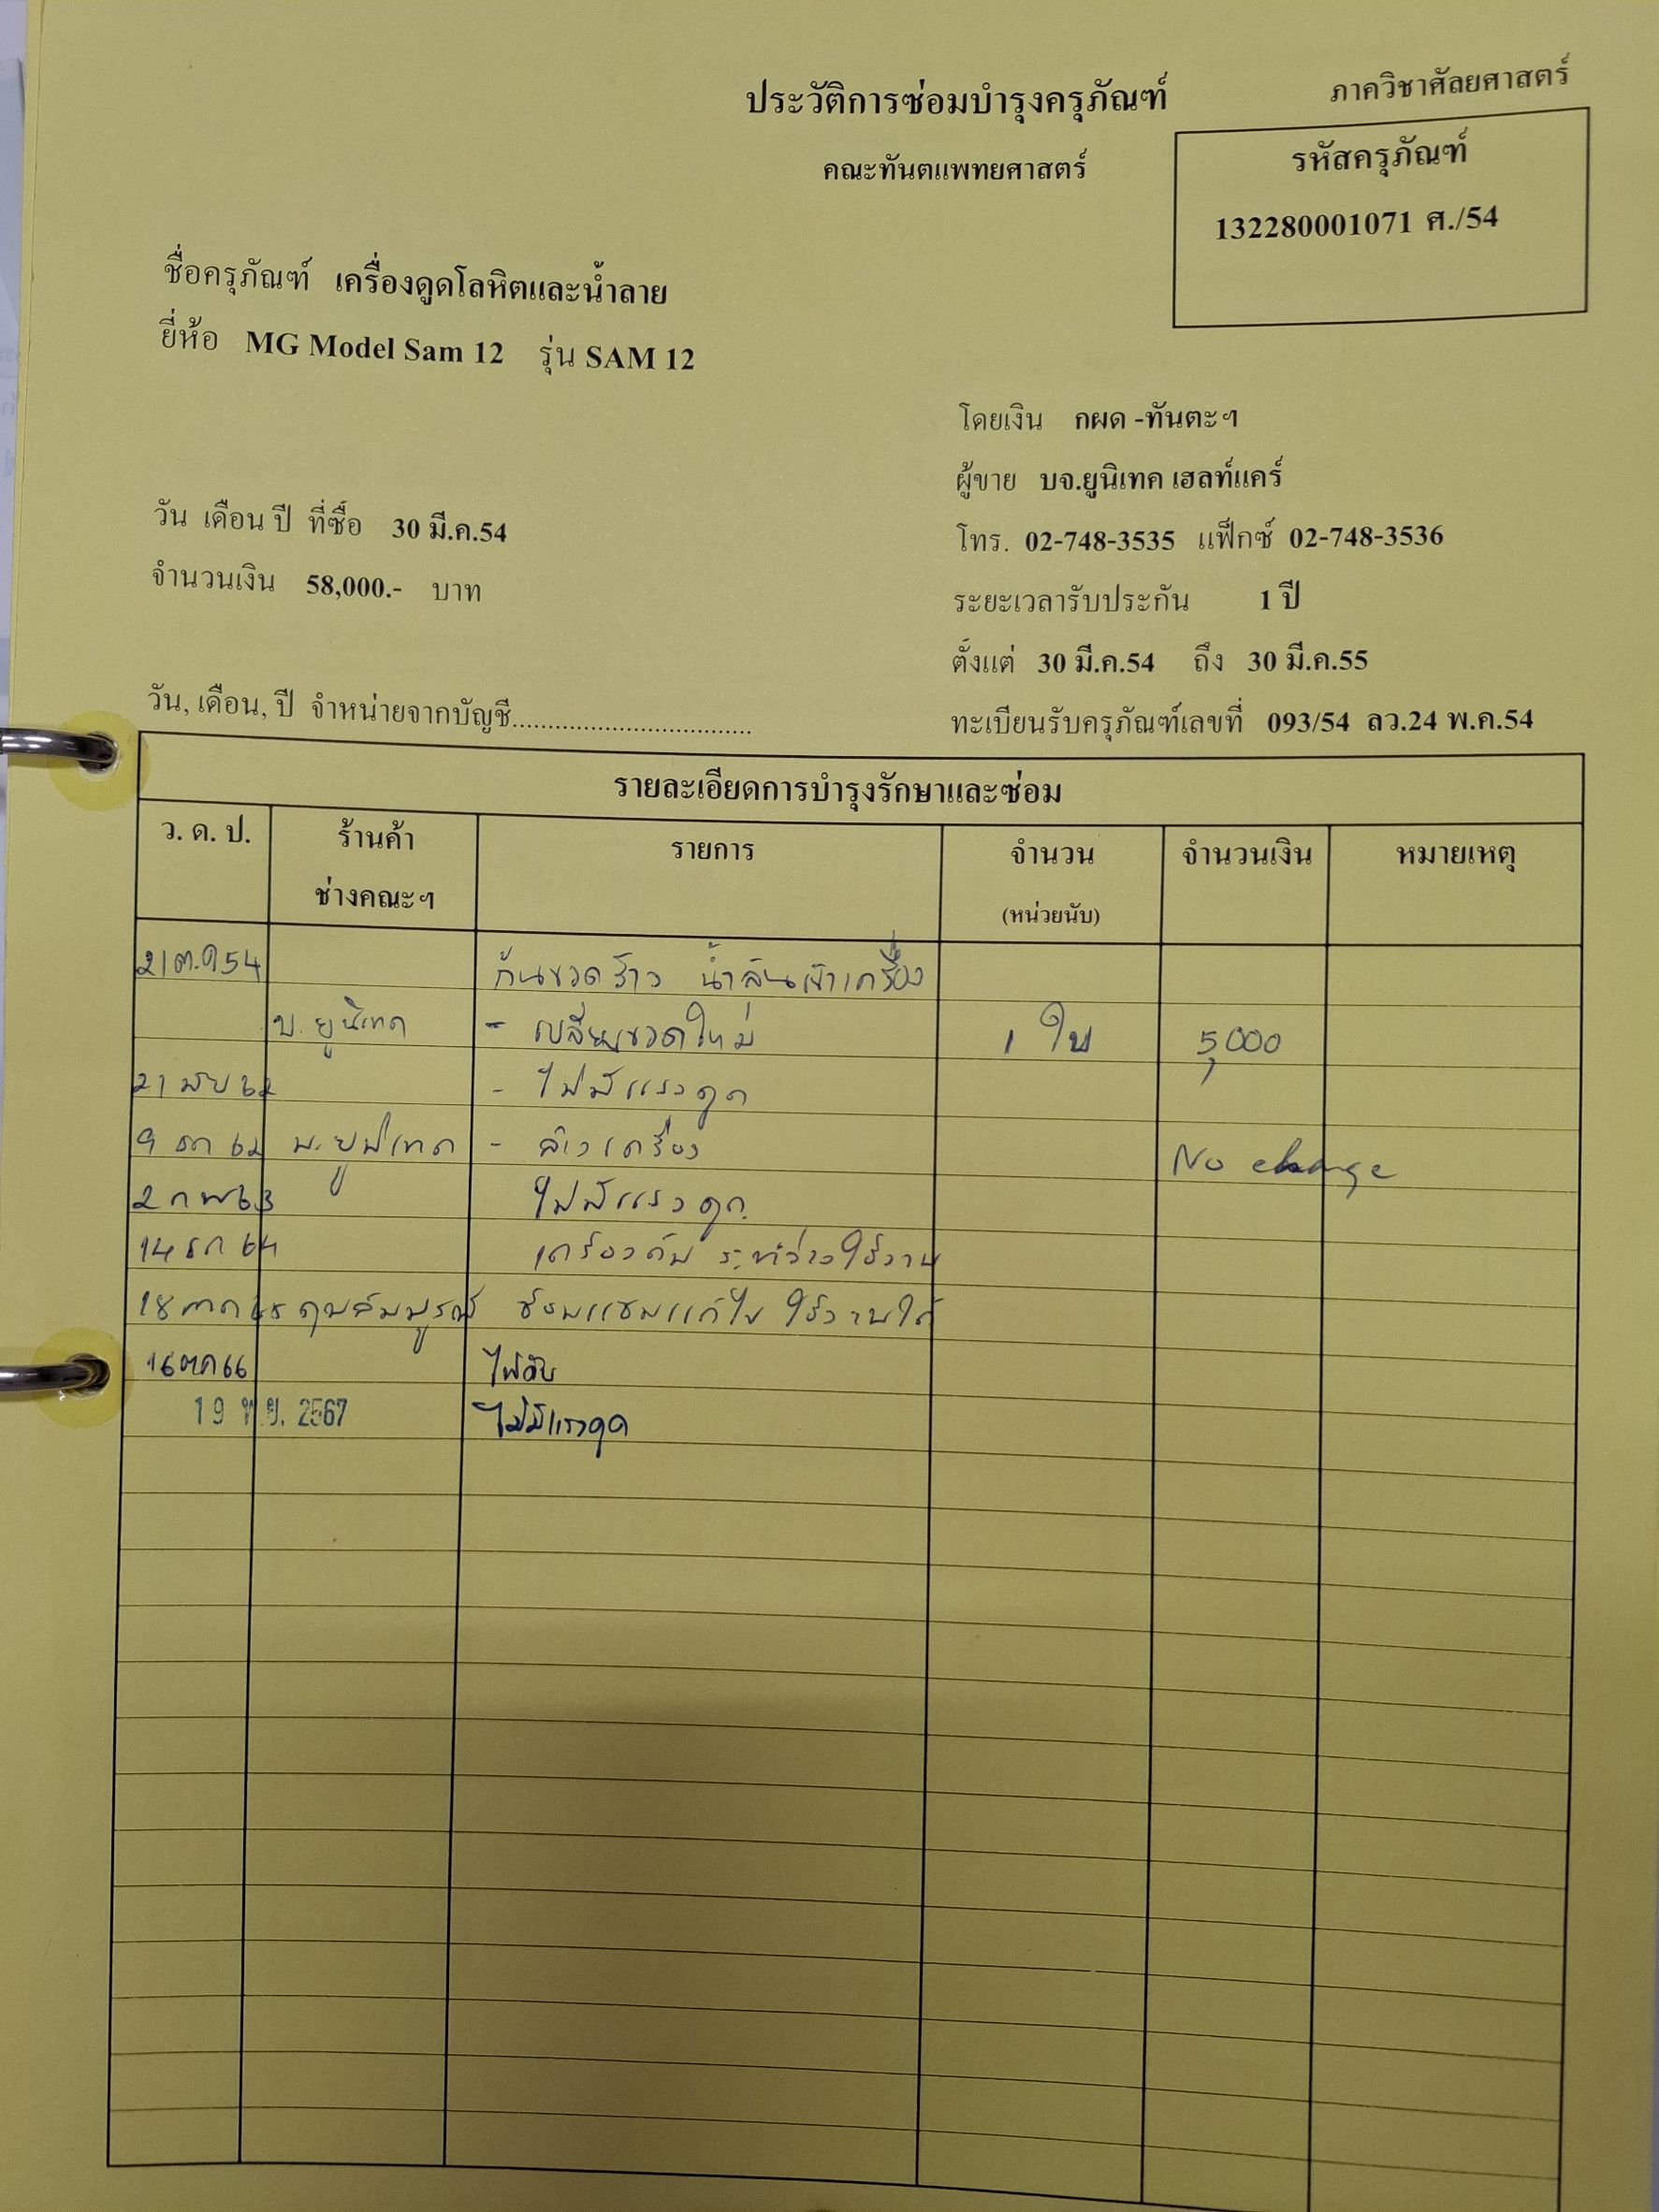 ภาควิชาศัลยศาสตร์
ประวัติการซ่อมบำรุงครุภัณฑ์
คณะทันตแพทยศาสตร์
รหัสครุภัณฑ์
132280001071 ศ./54
ชื่อครุภัณฑ์ เครื่องดูดโลหิตและน้ำลาย
ยี่ห้อ MG Model Sam 12 รุ่น SAM 12
โดยเงิน กผด -ทันตะฯ
ผู้ขาย บจ.ยูนิเทค เฮลท์แคร์
วัน เดือน ปี ที่ซื้อ 30 มี.ค.54
โทร. 02-748-3535 แฟ็กซ์ 02-748-3536
จำนวนเงิน 58,000.- บาท
ระยะเวลารับประกัน 1 ปี
ตั้งแต่ 30 มี.ค.54 ถึง 30 มี.ค.55
วัน, เดือน, ปี จำหน่ายจากบัญชี.................................
ทะเบียนรับครุภัณฑ์เลขที่ 093/54 ลว.24 พ.ค.54
รายละเอียดการบำรุงรักษาและซ่อม
ว. ด. ป. ร้านค้า รายการ จำนวน จำนวนเงิน หมายเหตุ
ช่างคณะฯ (หน่วยนับ)
ก้นขวดร้าว น้ำล้นเข้าเครื่อง
บ. ยูนิเทค - เปลี่ยนขวดใหม่ 1 ใบ 5,000
- ไม่มีแรงดูด
9 ธค 62 บ. ยูนิเทค - ล้างเครื่อง No change
2 กพ 63 ไม่มีแรงดูด
14 ธค 64 เครื่องดับ ระหว่างใช้งาน
คุณสมบูรณ์ ซ่อมแซมแก้ไข ใช้งานได้
16 ตค 66 ไฟดับ
19 พ.ย. 2567 ไม่มีแรงดูด